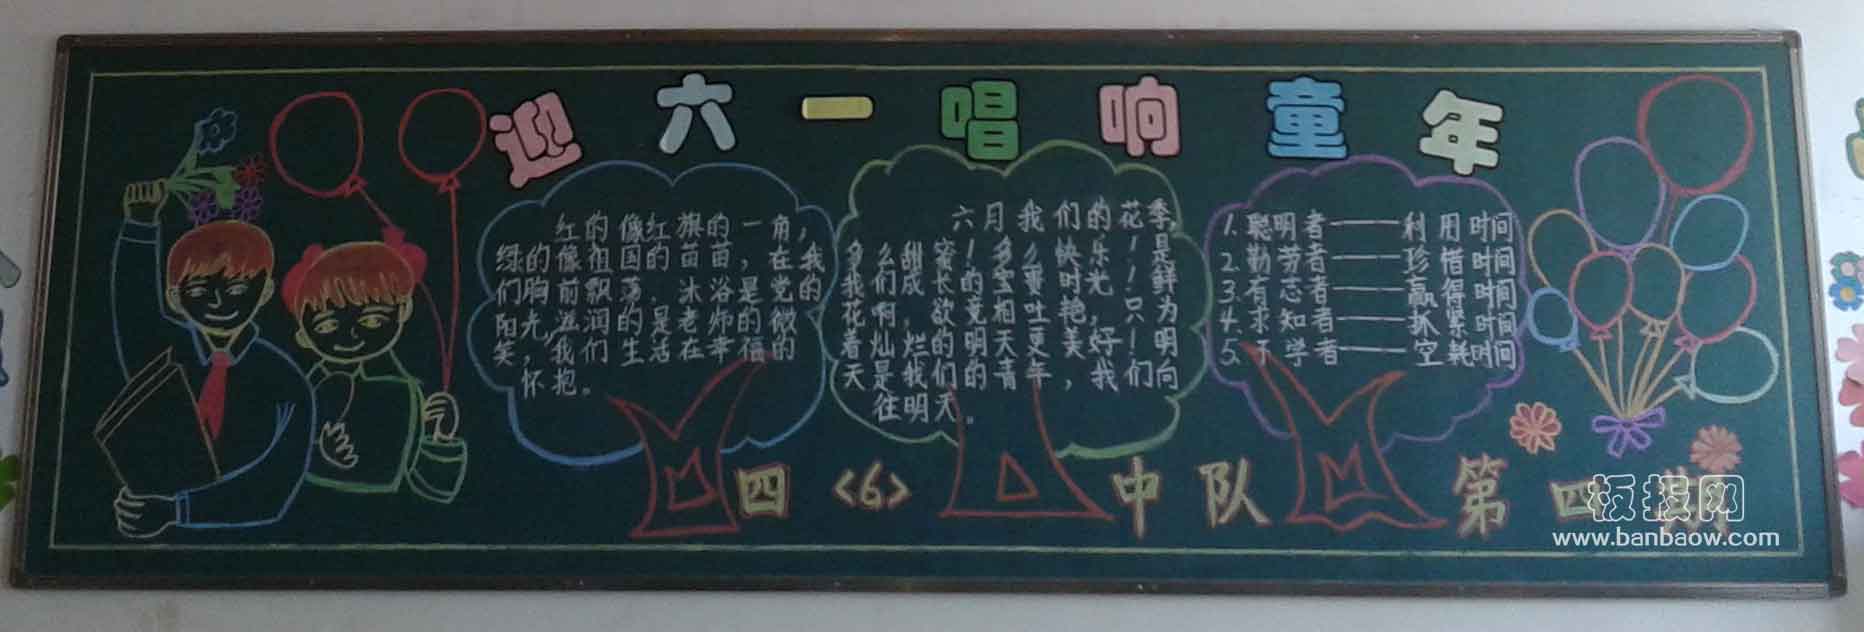 迎六一唱响童年
红的像红旗的一角，
绿的像祖国的苗苗，在我
们胸前飘荡，沐浴是党的
阳光，滋润的是老师的微
笑，我们生活在幸福的
怀抱。
六月我们的花季，
多么甜蜜！多么快乐！是
我们成长的宝贵时光！鲜
花啊，欲竞相吐艳，只为
着灿烂的明天更美好！明
天是我们的青年，我们向
往明天。
1. 聪明者——利用时间
2. 勤劳者——珍惜时间
3. 有志者——赢得时间
4. 求知者——抓紧时间
5. 不学者——空耗时间
四<6>中队 第四期
板报网
www.banbaow.com